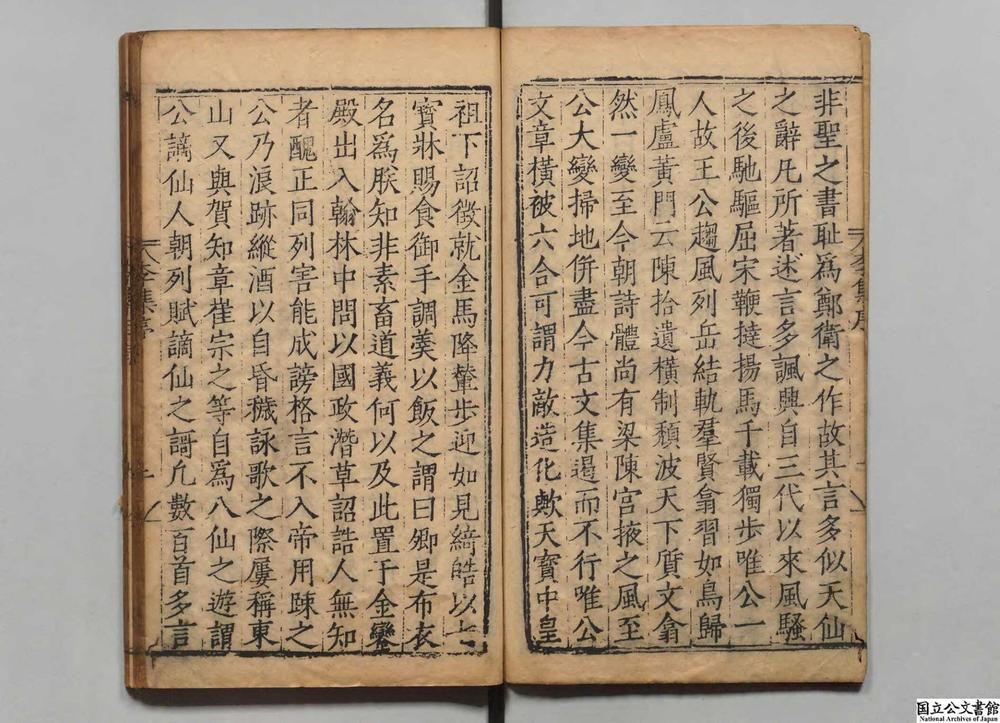 非聖之書恥爲鄭衛之作故其言多似天仙
之辭凡所著述言多諷興自三代以來風騷
之後馳驅屈宋鞭撻揚馬千載獨步唯公一
人故王公趨風列岳結軌羣賢翕習如鳥歸
鳳盧黃門云陳拾遺橫制頹波天下質文翕
然一變至今朝詩體尚有梁陳宮掖之風至
公大變掃地併盡今古文集遏而不行唯公
文章橫被六合可謂力敵造化歟天寶中皇
祖下詔徵就金馬降輦步迎如見綺皓以七
寶牀賜食御手調羹以飯之謂曰卿是布衣
名爲朕知非素畜道義何以及此置于金鑾
殿出入翰林中問以國政潛草詔誥人無知
者醜正同列害能成謗格言不入帝用踈之
公乃浪跡縱酒以自昏穢詠歌之際屢稱東
山又與賀知章崔宗之等自爲八仙之遊謂
公謫仙人朝列賦謫仙之謌凢數百首多言
李集序
李集序
国立公文書館
National Archives of Japan